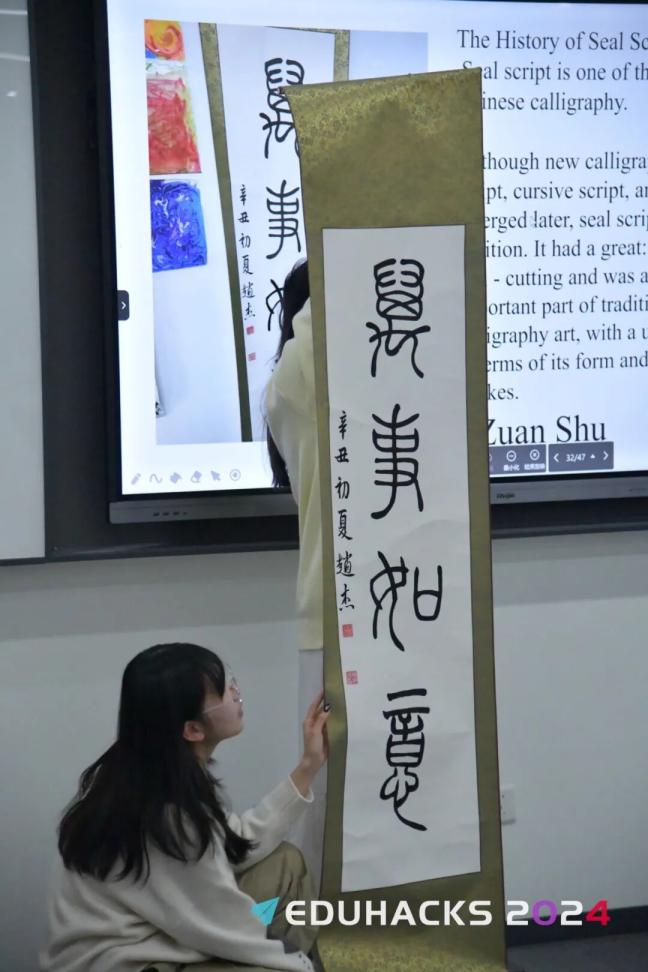 The History of Seal Sc
Seal script is one of th
inese calligraphy.
though new calligra
pt, cursive script, an
erged later, seal scrip
ition. It had a great:
- cutting and was a
ortant part of traditi
igraphy art, with a u
erms of its form and
kes.
Zuan Shu
最小化 结束放映 32/47
萬事如
辛丑初夏趙杰
萬事如意
辛丑初夏趙杰
EDUHACKS 2024